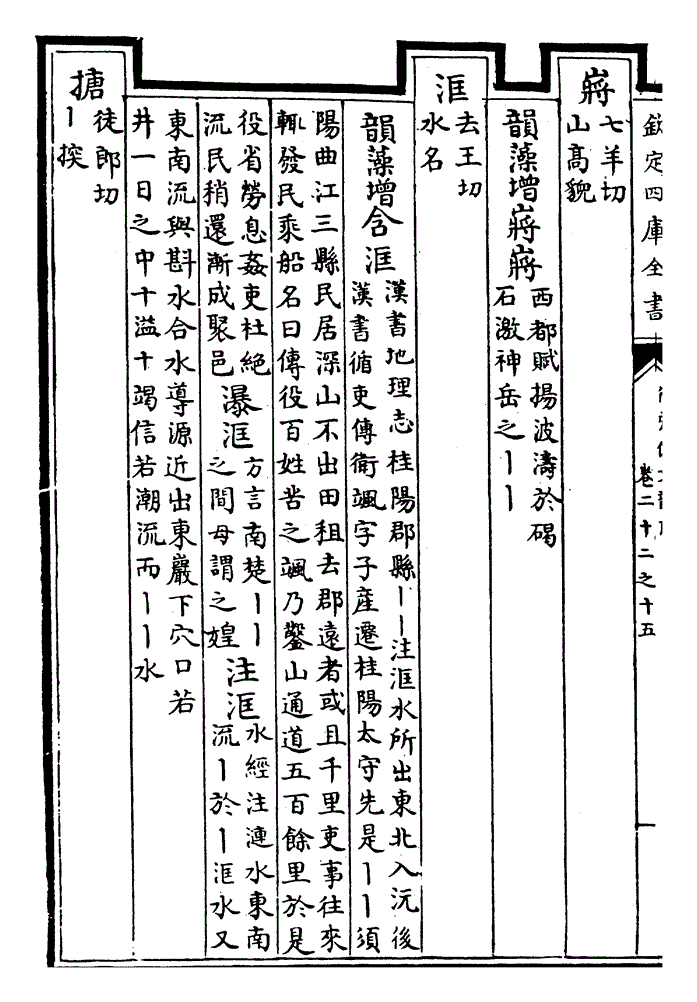 欽定四庫全書
卷二十二之十五
嶈
七羊切
山髙貌
韻藻增嶈嶈
西都賦揚波濤於碣
石激神岳之丨丨
洭
去王切
水名
韻藻增含洭
漢書地理志桂陽郡縣丨丨注洭水所出東北入沅後
漢書循吏傳衛颯字子産遷桂陽太守先是丨丨須
陽曲江三縣民居深山不出田租去郡遠者或且千里吏事往來
輙發民乘船名曰傳役百姓苦之颯乃鑿山通道五百餘里於是
役省勞息姦吏杜絶
流民稍還漸成聚邑
瀑洭
方言南楚丨丨
之間母謂之媓
注洭
水經注漣水東南
流丨於丨洭水又
東南流與斟水合水導源近出東巖下穴口若
井一日之中十溢十竭信若潮流而丨丨水
搪
徒郎切
丨揬